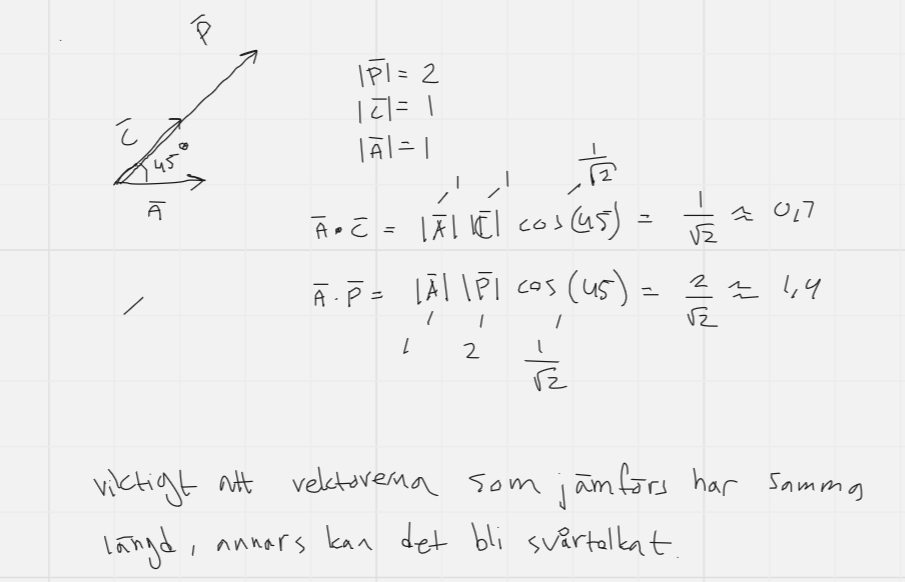 P̄
|P̄| = 2
|C̄| = 1
|Ā| = 1
C̄
45°
Ā
1 1 1/√2
Ā • C̄ = |Ā| |C̄| cos(45) = 1/√2 ≈ 0,7
Ā . P̄ = |Ā| |P̄| cos(45) = 2/√2 ≈ 1,4
1 2 1/√2
viktigt att vektorerna som jämförs har samma
längd, annars kan det bli svårtolkat.